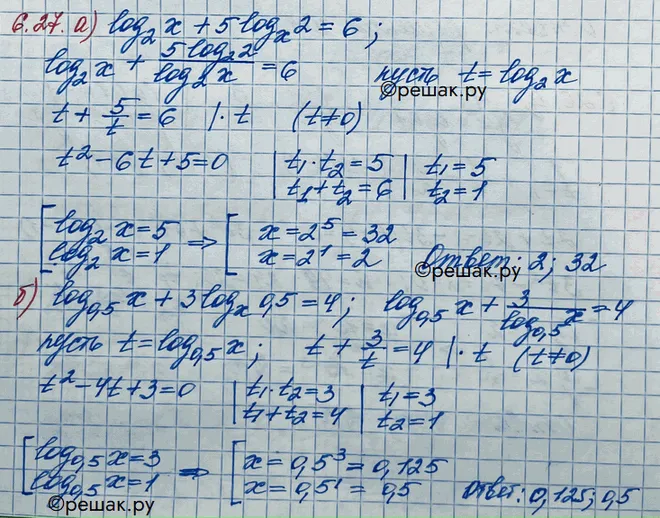 6.27. а) log₂ x + 5 logₓ 2 = 6 ;
log₂ x + 5 log₂ 2 / log₂ x = 6 пусть t = log₂ x
©решак.ру
t + 5/t = 6 | · t (t≠0)
t² - 6t + 5 = 0 | t₁ · t₂ = 5 | t₁ = 5
| t₁ + t₂ = 6 | t₂ = 1
[ log₂ x = 5 => [ x = 2⁵ = 32
log₂ x = 1 x = 2¹ = 2 Ответ: 2; 32
©решак.ру
б) log₀,₅ x + 3 logₓ 0,5 = 4 ; log₀,₅ x + 3 / log₀,₅ x = 4
пусть t = log₀,₅ x ; t + 3/t = 4 | · t (t≠0)
t² - 4t + 3 = 0 | t₁ · t₂ = 3 | t₁ = 3
| t₁ + t₂ = 4 | t₂ = 1
[ log₀,₅ x = 3 => [ x = 0,5³ = 0,125
log₀,₅ x = 1 x = 0,5¹ = 0,5 Ответ: 0,125; 0,5
©решак.ру